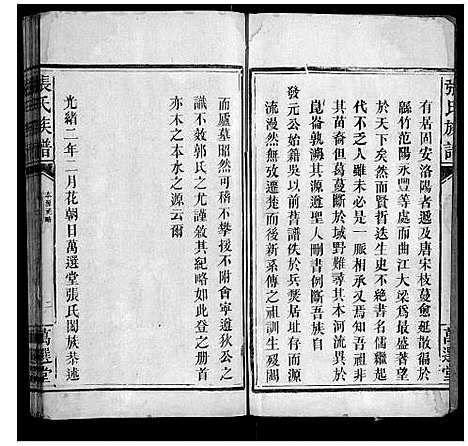 張氏族譜
萬選堂
有居固安洛陽者遞及唐宋枝蔓愈延散徧於
縣竹范陽永豐等處而曲江大梁爲最盛著望
於天下矣然而賢哲迭生史不絕書名儒繼起
代不乏人雖未必是一脈相承又焉知吾祖非
其苗裔但葛蔓斷於域野難尋其本河流異於
崑崙孰溯其源遡聖人刪書例斷吾族自
發元公始籍吳以前舊譜佚於兵燹居址存而源
流漫然無效遷楚而後新系傳之祖訓生殘闕
而廬墓昭然可稽與不附會寧遵狄公之
識不效郭氏之尤謹敘其紀略如此登之册首
亦木之本水之源云爾
光緒二年二月花朝日萬選堂張氏闔族恭述
張氏族譜
本源紀略
二
萬選堂